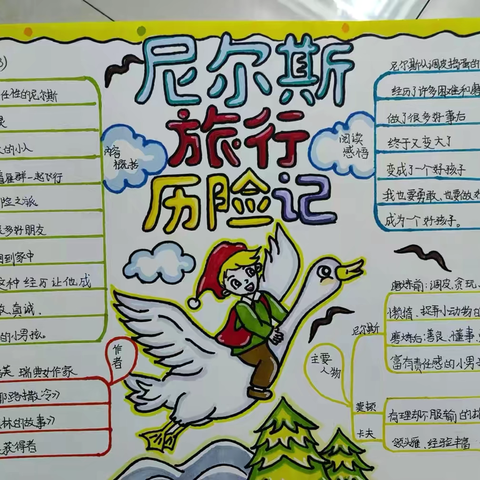 尼尔斯
旅行
历险记
内容
梗概
阅读
感悟
任性的尼尔斯
的小人
着雁群一起飞行
险之旅
多好朋友
回到家中
这种经历让他成
真诚、
的小男孩。
作者
瑞典女作家
耶路撒冷》
林的故事》
获得者
尼尔斯从调皮捣蛋的
经历了许多困难和磨
做了很多好事后
终于又变大了
变成了一个好孩子
我也要勇敢、也要做好
成为一个好孩子。
主要
人物
尼尔斯
磨炼前:调皮、贪玩、
懒惰、捉弄小动物的
磨炼后:善良、懂事、
富有责任感的小男孩
莫顿
有理却不服输的雄
卡夫
领头雁、经验丰富